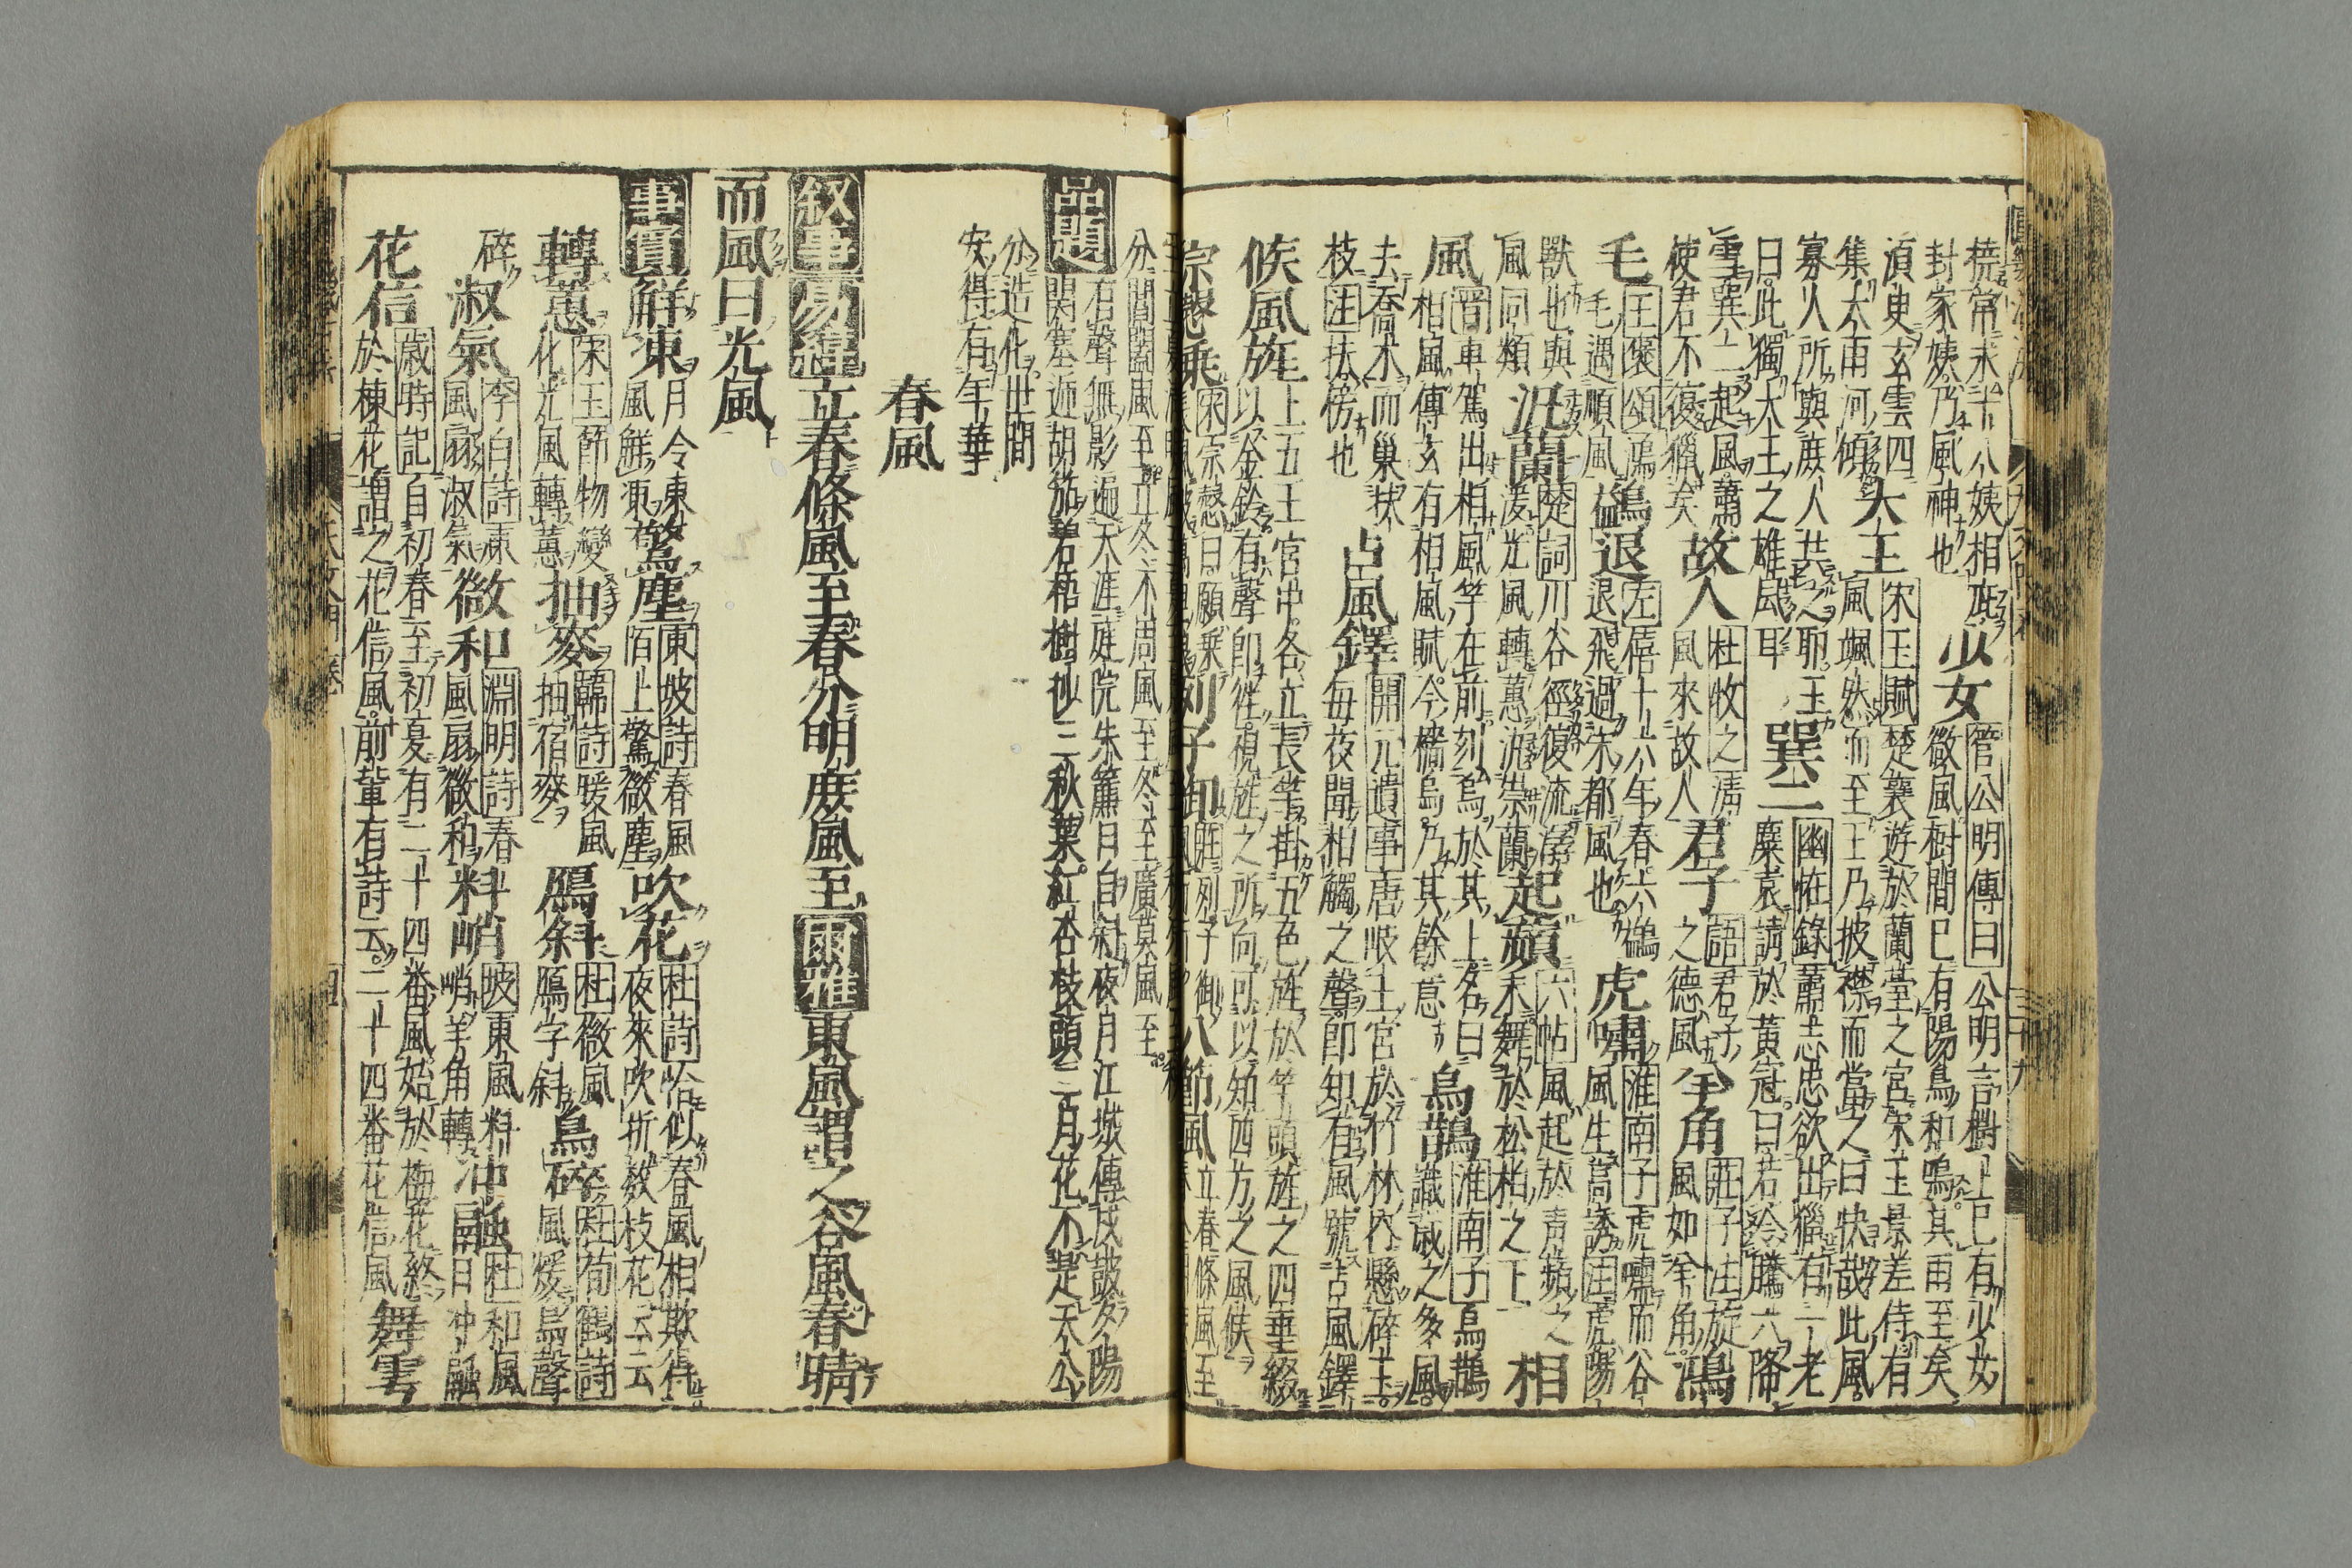 橈常求十八姨相庇封家姨乃風神也少女管公明傳曰公明言樹上已有少女微風樹間已有陽鳥和鳴其雨至矣
湏臾玄雲四集大雨河傾大王宋玉賦楚襄遊於蘭臺之宮宋玉景差侍有風颯然而至王乃披襟而當之曰快哉此風
寡人所與庶人共之耶玉曰此獨大王之雄風耳巽二幽怪錄蕭志忠欲出獵有一老麋哀請於黃冠曰若冷騰六降
雪巽二起風蕭使君不復獵矣故人杜牧之清風來故人君子語君子之德風羊角莊子注旋風如羊角鴻
毛王褒頌鴻毛遇順風鷁退左僖十六年春六鷁退飛過宋都風也虎嘯淮南子虎嘯而谷風生高誘注虎陽
獸也與風同類泛蘭楚詞川谷徑復流潺湲光風轉蕙泛崇蘭起蘋六帖風起於青蘋之末舞於松柏之下相
風晋車駕出相風竿在前刻烏於其上名曰相風傳玄有相風賦今檣烏乃其餘意烏鵲淮南子烏鵲識歲之多風
去喬木而巢扶枝注扶傍也占風鐸開元遺事唐岐王宮於竹林內懸碎玉每夜聞相觸之聲即知有風號占風鐸
候風旌上五王宮中各立長竿掛五色旌於竿頭旌之四垂綴以金鈴有聲即往視旌之所向可以知四方之風候
宗愨乘宋宗愨曰願乘列子御莊列子御八節風立春條風至
分閶闔風至立冬不周風至冬至廣莫風至
品題有聲無影遍天涯庭院朱簾日自斜夜月江城傳戍鼓夕陽関塞遞胡笳碧梧樹杪三秋葉紅杏枝頭二月花不是天公
分造化世間安得有年華
春風
叙事易緯立春條風至春分明庶風至爾雅東風謂之谷風春晴
而風曰光風
事實鮮凍月令東風鮮凍驚塵東坡詩春風陌上驚微塵吹花杜詩恰似春風相欺得夜來吹折數枝花云云
轉蕙宋玉節物變化光風轉蕙抽麥韓詩暖風抽宿麥鴈斜杜微風鴈字斜鳥碎杜荀鶴詩風煖鳥聲
碎淑氣李白詩東風扇淑氣微和淵明詩春風扇微和料峭坡東風料峭羊角轉冲融杜和風日冲融
花信歲時記自初春至初夏有二十四番風始於梅花終於棟花謂之花信風前輩有詩云二十四番花信風舞雩